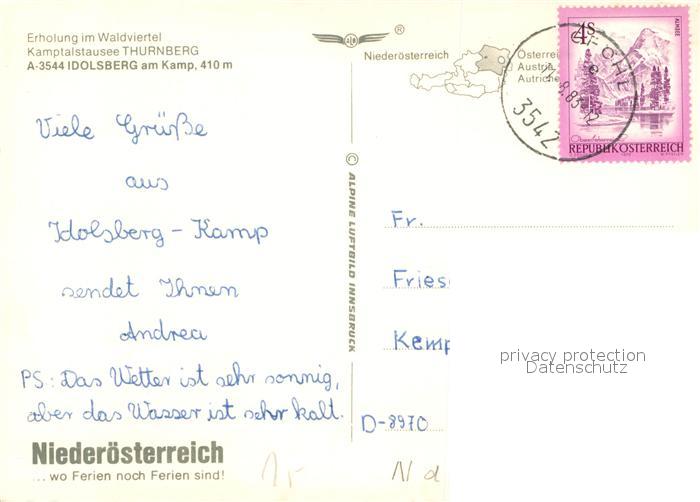 Erholung im Waldviertel
Kamptalstausee THURNBERG
A-3544 IDOLSBERG am Kamp, 410 m
®
Niederösterreich
Austria
Autriche
4s
ALMSEE
REPUBLIK ÖSTERREICH
3542
Viele Grüße
aus
Idolsberg - Kamp
sendet Ihnen
Andrea
PS: Das Wetter ist sehr sonnig,
aber das Wasser ist sehr kalt.
© ALPINE LUFTBILD INNSBRUCK
Fr.
Fries
Kemp
D-8970
privacy protection
Datenschutz
Niederösterreich
... wo Ferien noch Ferien sind!